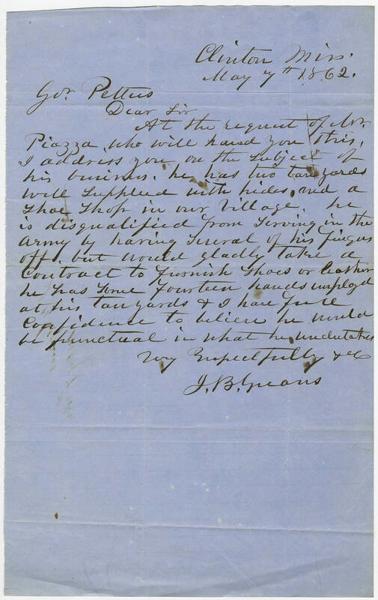 Clinton Miss.
May 7th 1862.
Gov. Pettus
Dear Sir
At the request of Mr.
Piazza, who will hand you this,
I address you on the subject of
his business. he has two tanyards
well supplied with hides, and a
Shoe Shop in our Village. he
is disqualified from serving in the
Army by having several of his fingers
off, but would gladly take a
contract to furnish Shoes or Leather
he has some fourteen hands employed
at his tanyards & I have full
confidence to believe he would
be punctual in what he undertakes
Very Respectfully &c
J. B.